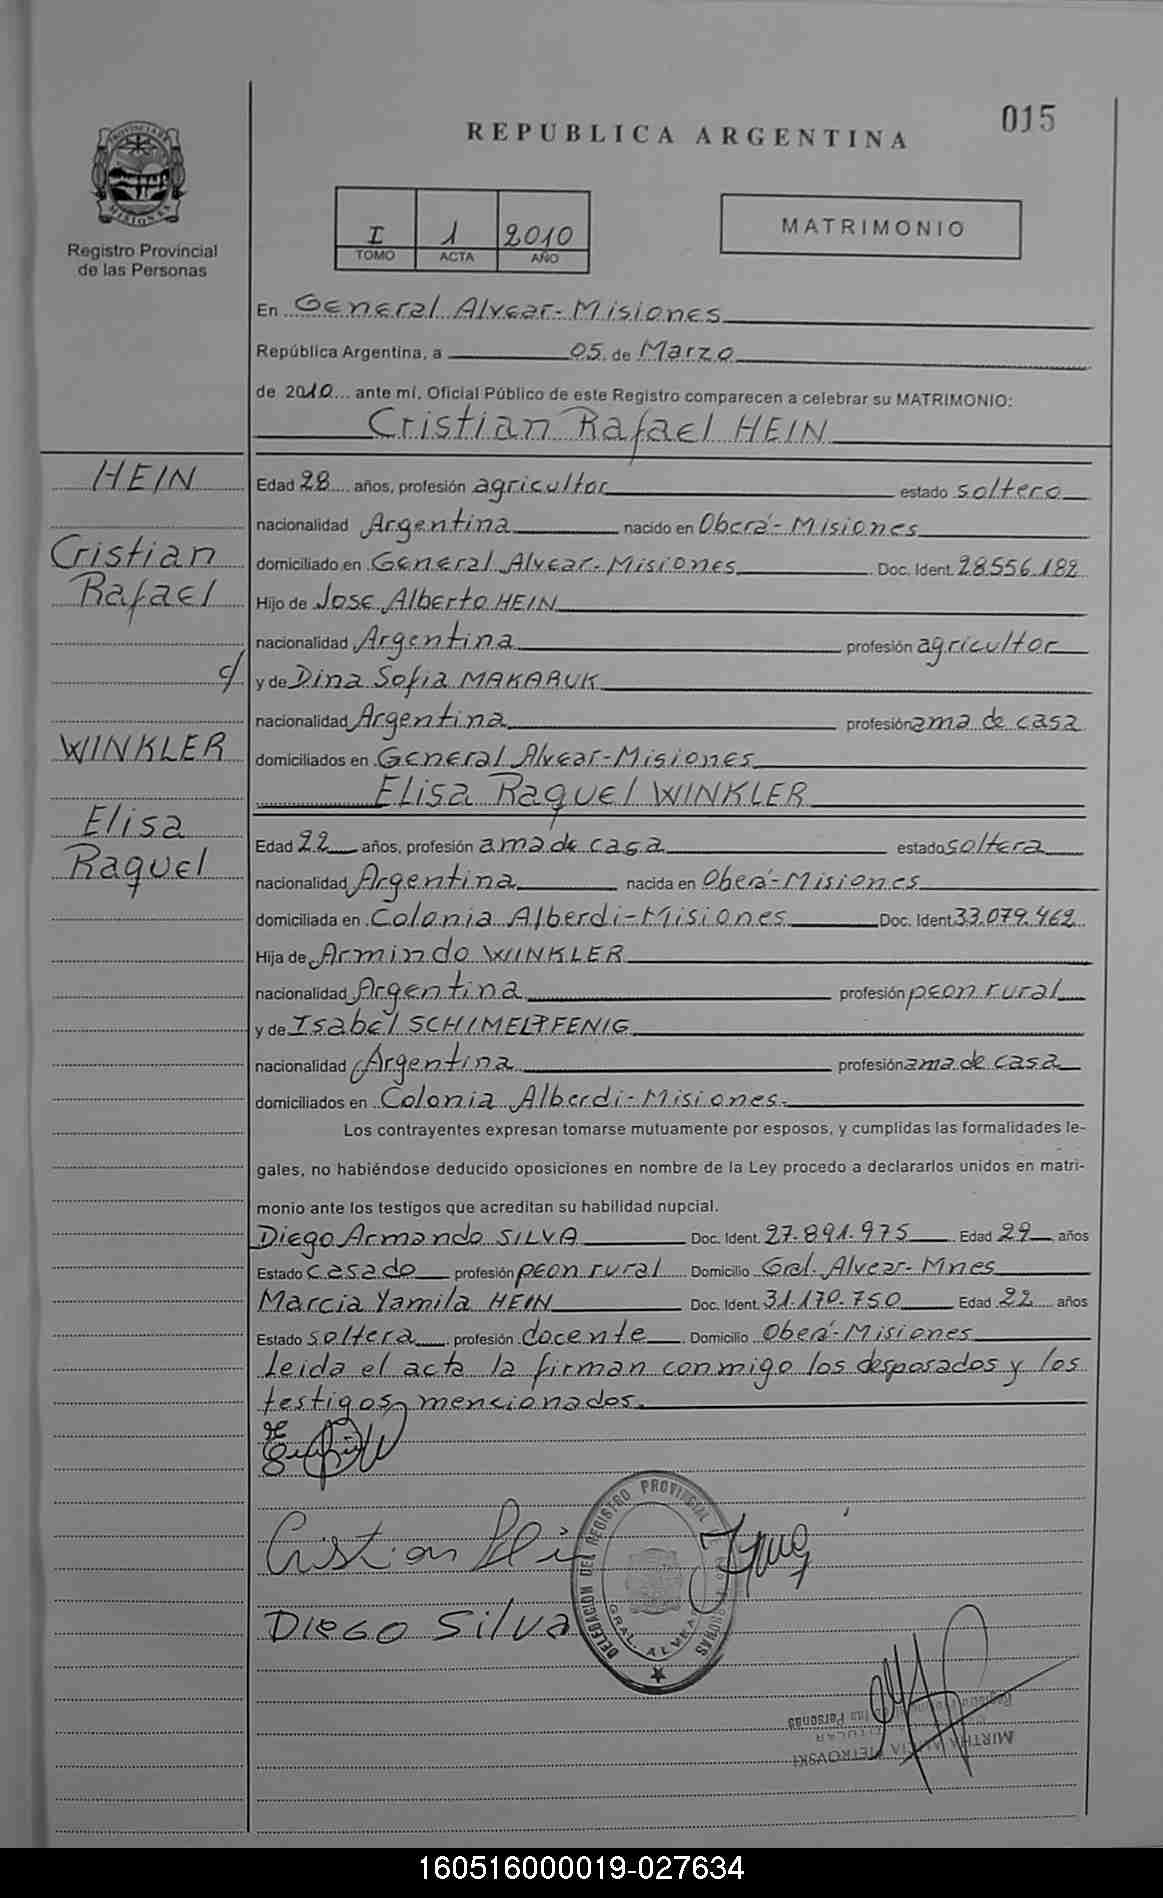 015
REPUBLICA ARGENTINA
PROVINCIA DE
MISIONES
Registro Provincial
de las Personas
I 1 2010
TOMO ACTA AÑO
MATRIMONIO
En General Alvear-Misiones
República Argentina, a 05 de Marzo
de 2010 ante mí, Oficial Público de este Registro comparecen a celebrar su MATRIMONIO:
Cristian Rafael HEIN
HEIN
Cristian
Rafael
c/
WINKLER
Elisa
Raquel
Edad 28 años, profesión agricultor estado soltero
nacionalidad Argentina nacido en Oberá-Misiones
domiciliado en General Alvear-Misiones Doc. Ident. 28.556.182
Hijo de Jose Alberto HEIN
nacionalidad Argentina profesión agricultor
y de Dina Sofia MAKARUK
nacionalidad Argentina profesión ama de casa
domiciliados en General Alvear-Misiones
Elisa Raquel WINKLER
Edad 22 años, profesión ama de casa estado soltera
nacionalidad Argentina nacida en Oberá-Misiones
domiciliada en Colonia Alberdi-Misiones Doc. Ident 33.079.462
Hija de Armindo WINKLER
nacionalidad Argentina profesión peon rural
y de Isabel SCHIMELPFENIG
nacionalidad Argentina profesión ama de casa
domiciliados en Colonia Alberdi-Misiones-
Los contrayentes expresan tomarse mutuamente por esposos, y cumplidas las formalidades le-
gales, no habiéndose deducido oposiciones en nombre de la Ley procedo a declararlos unidos en matri-
monio ante los testigos que acreditan su habilidad nupcial.
Diego Armando SILVA Doc. Ident. 27.891.975 Edad 29 años
Estado casado profesión peon rural Domicilio Gral. Alvear-Mnes
Marcia Yamila HEIN Doc. Ident. 31.170.750 Edad 22 años
Estado soltera profesión docente Domicilio Oberá-Misiones
Leida el acta la firman conmigo los desposados y los
testigos mencionados.
Cristian
DELEGACION DEL REGISTRO PROVINCIAL DE LAS PERSONAS
GRAL. ALVEAR
DIEGO Silva
Registro Provincial de las Personas
TITULAR
MIRTHA PIETROVSKI
160516000019-027634